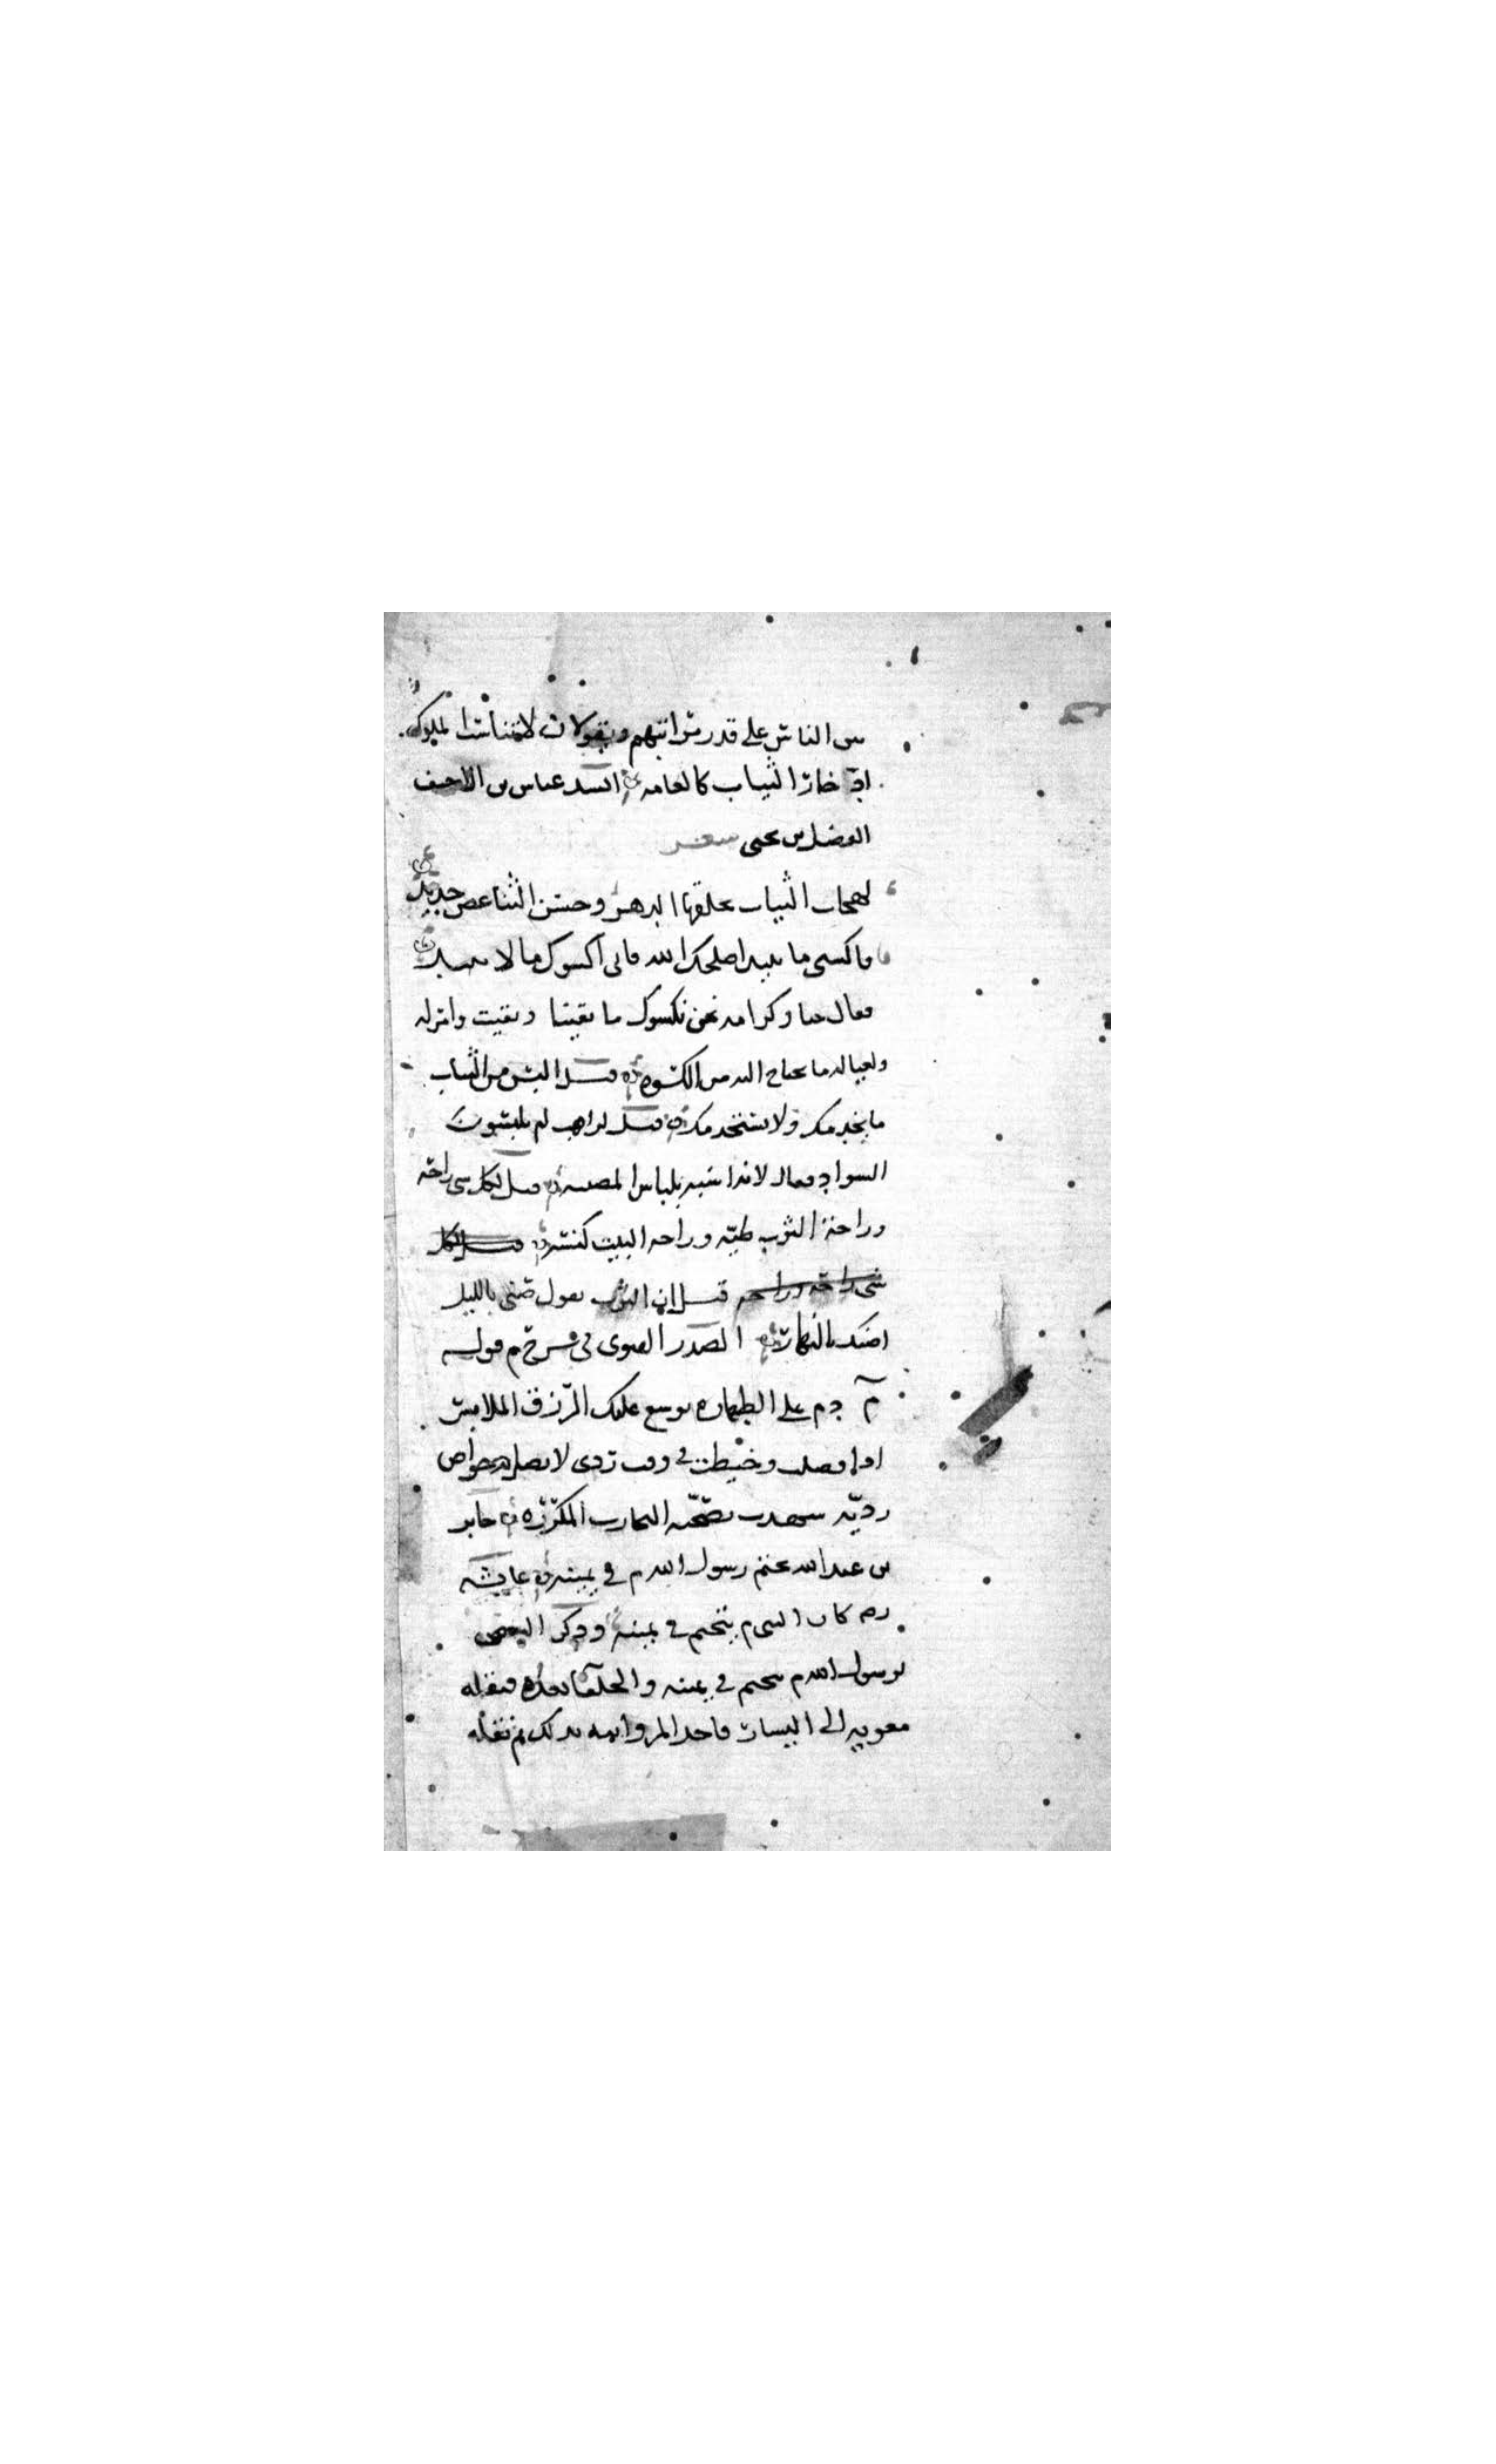 بين الناس على قدر مراتبهم ويقولان لا تتناسب الملوك
ادخار الثياب كالعامة انشد عباس بن الاحنف
الفضل بن يحيى شعر
الثياب يخلقها الدهر وحسن الثنا غض جديد
فاكسني ما يبيد اصلحك الله فاني اكسوك ما لا يبيد
فقال حبا وكرامة نحن نكسوك ما بقينا وبقيت وامر له
ولعياله ما يحتاج اليه من الكسوة قيل البس من الثياب
ما يخدمك ولا يستخدمك قيل لراهب لم تلبسون
السواد فقال لانه اشبه بلباس المصيبة قيل لكل شي راحة
وراحة الثوب طيه وراحة البيت كنسه قيل لكل
شي راحة وراحة قيل ان الثوب يقول صنى بالليل
اصنك بالنهار الصدر القنوى في شرح قوله
م دم على الطهارة يوسع عليك الرزق الملابس
اذا فصلت وخيطت في وقت ردى لا تصل به خواص
ردية شهدت بصحته التجارب المكررة جابر
بن عبد الله تختم رسول الله م في يمينه عايشه
رض كان النبى م يتختم في يمينه وذكر
رسول الله م يتختم في يمينه والخلفا بعده فنقله
معوية الى اليسار فاخذ المروانية بذلك ثم نقله